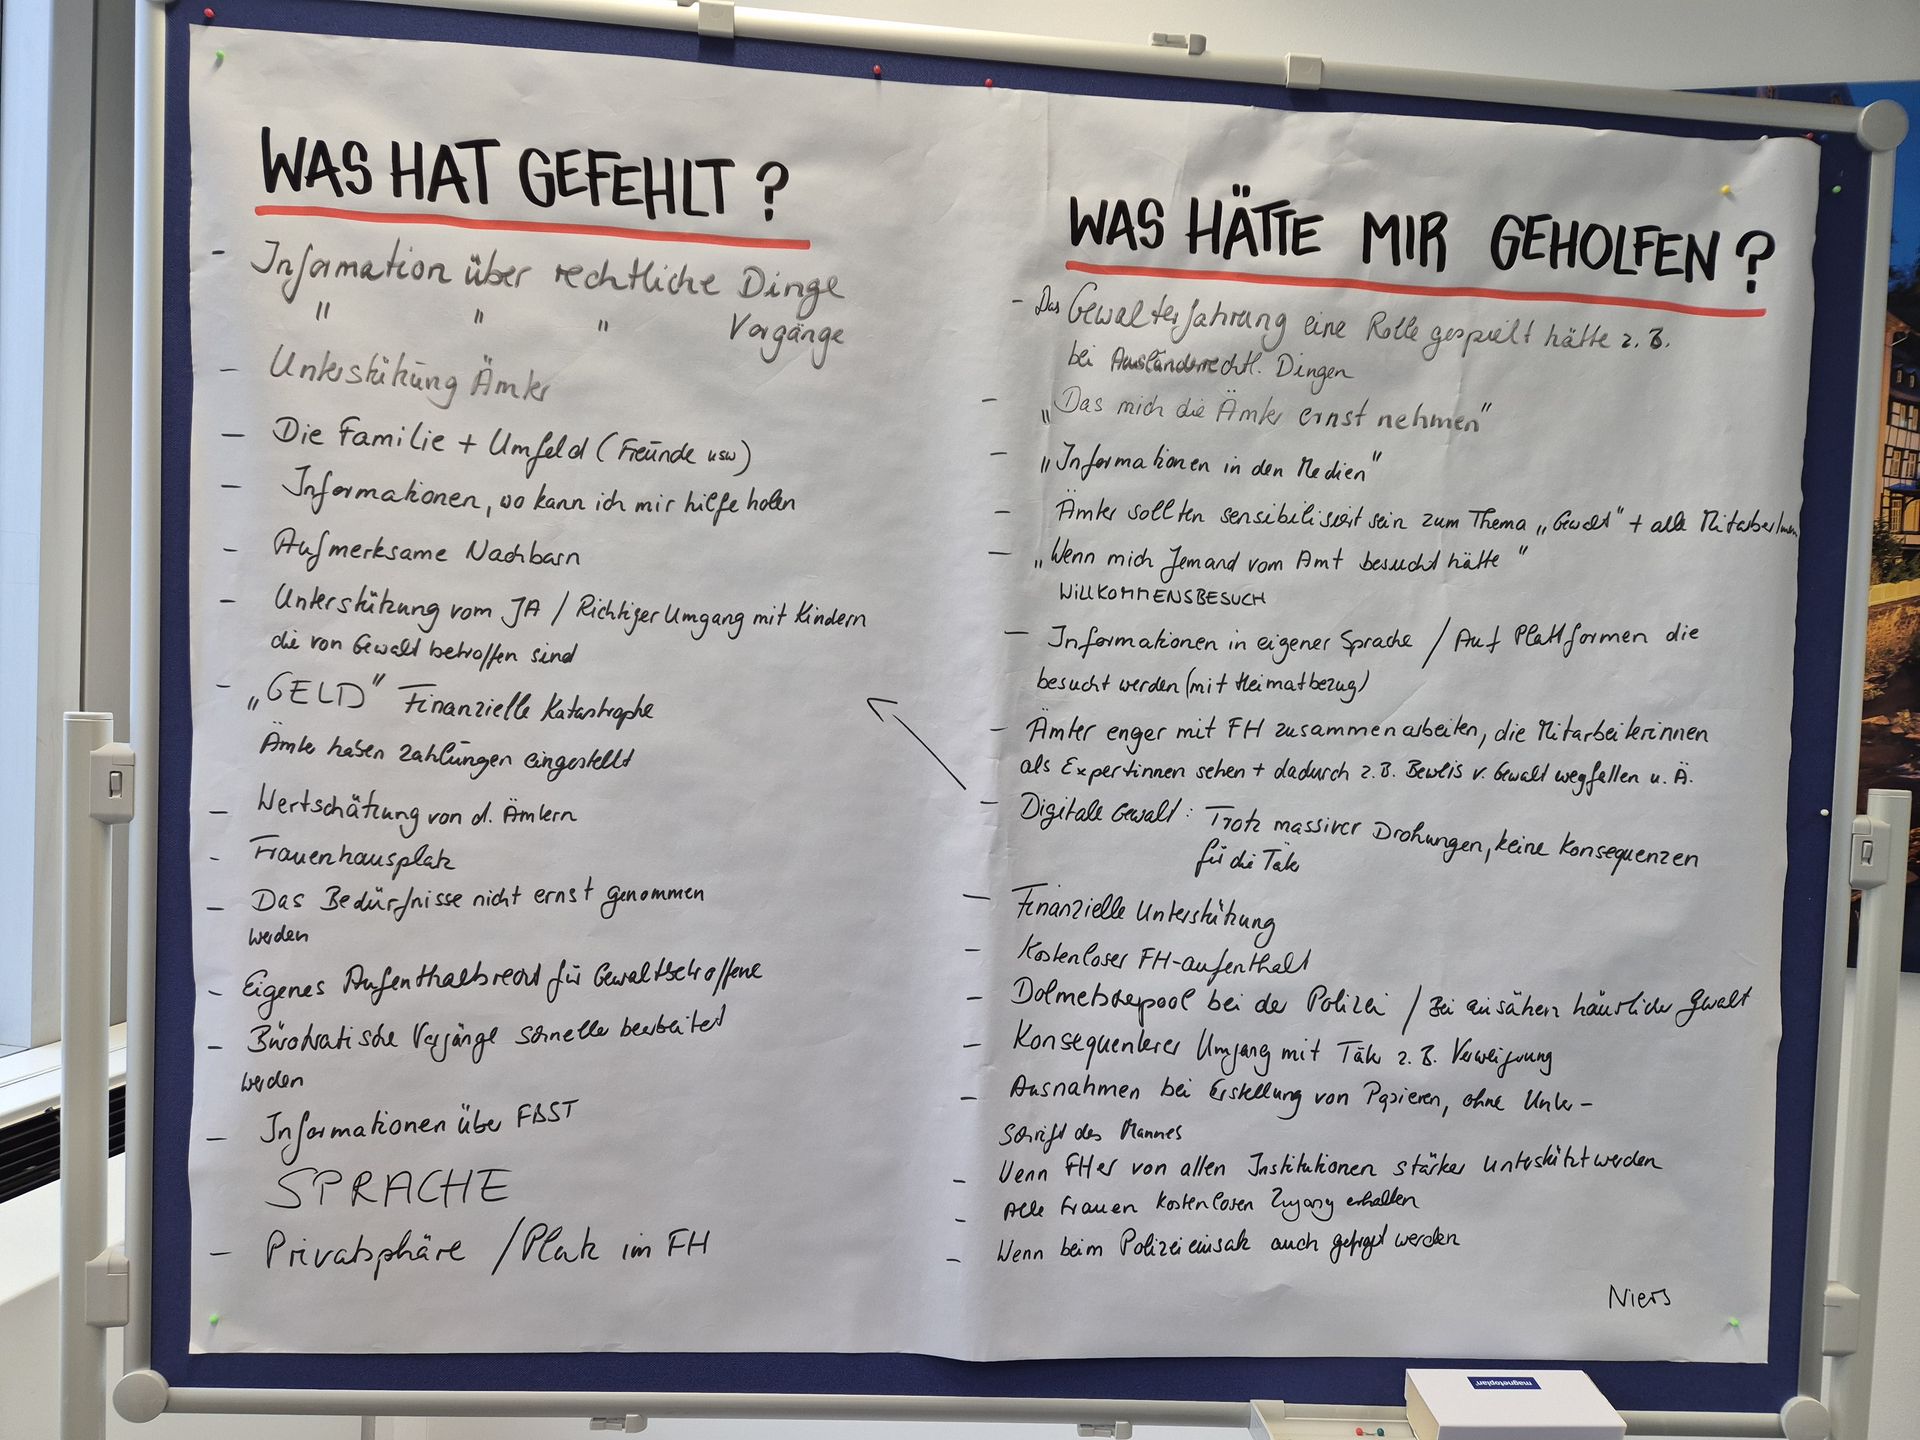 WAS HAT GEFEHLT?
- Information über rechtliche Dinge
" " " Vorgänge
- Unterstützung Ämter
- Die Familie + Umfeld (Freunde usw)
- Informationen, wo kann ich mir hilfe holen
- Aufmerksame Nachbarn
- Unterstützung vom JA / Richtiger Umgang mit Kindern
die von Gewalt betroffen sind
- „GELD" Finanzielle Katastrophe
Ämter haben Zahlungen eingestellt
- Wertschätzung von d. Ämtern
- Frauenhausplatz
- Das Bedürfnisse nicht ernst genommen
werden
- Eigenes Aufenthaltsrecht für Gewaltbetroffene
- Bürokratische Vorgänge schneller bearbeitet
werden
- Informationen über FBST
SPRACHE
- Privatsphäre / Platz im FH
WAS HÄTTE MIR GEHOLFEN?
- Das Gewalterfahrung eine Rolle gespielt hätte z. B.
bei Ausländerrechtl. Dingen
- „Das mich die Ämter ernst nehmen"
- „Informationen in den Medien"
- Ämter sollten sensibilisiert sein zum Thema „Gewalt" + alle MitarberInnen
- „Wenn mich Jemand vom Amt besucht hätte"
WILLKOMMENSBESUCH
- Informationen in eigener Sprache / Auf Plattformen die
besucht werden (mit Heimatbezug)
- Ämter enger mit FH zusammenarbeiten, die Mitarbeiterinnen
als Expertinnen sehen + dadurch z.B. Beweis v. Gewalt wegfallen u. Ä.
- Digitale Gewalt: Trotz massiver Drohungen, keine Konsequenzen
für die Täter
- Finanzielle Unterstützung
- Kostenloser FH-aufenthalt
- Dolmetscherpool bei der Polizei / Bei häuslicher Gewalt
- Konsequenterer Umgang mit Täter z. B. Verweigerung
- Ausnahmen bei Erstellung von Papieren, ohne Unter-
schrift des Mannes
- Wenn FHer von allen Institutionen stärker unterstützt werden
- Alle Frauen kostenlosen Zugang erhalten
- Wenn beim Polizeieinsatz auch gefragt werden
Niers
magnetoplan